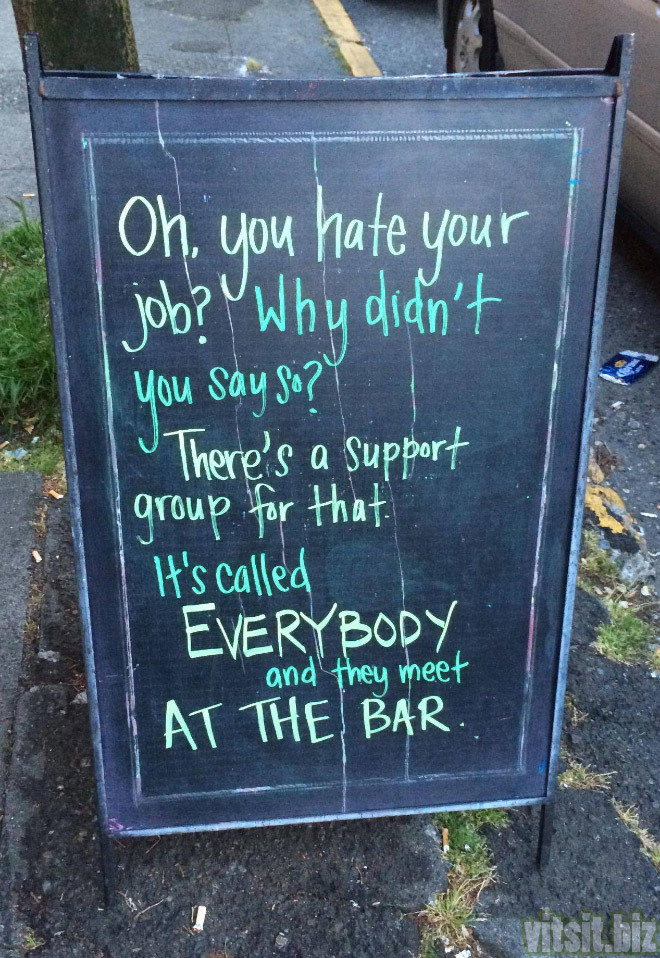 Oh, you hate your
job? Why didn't
you say so?
There's a support
group for that.
It's called
EVERYBODY
and they meet
AT THE BAR.
vitsit.biz